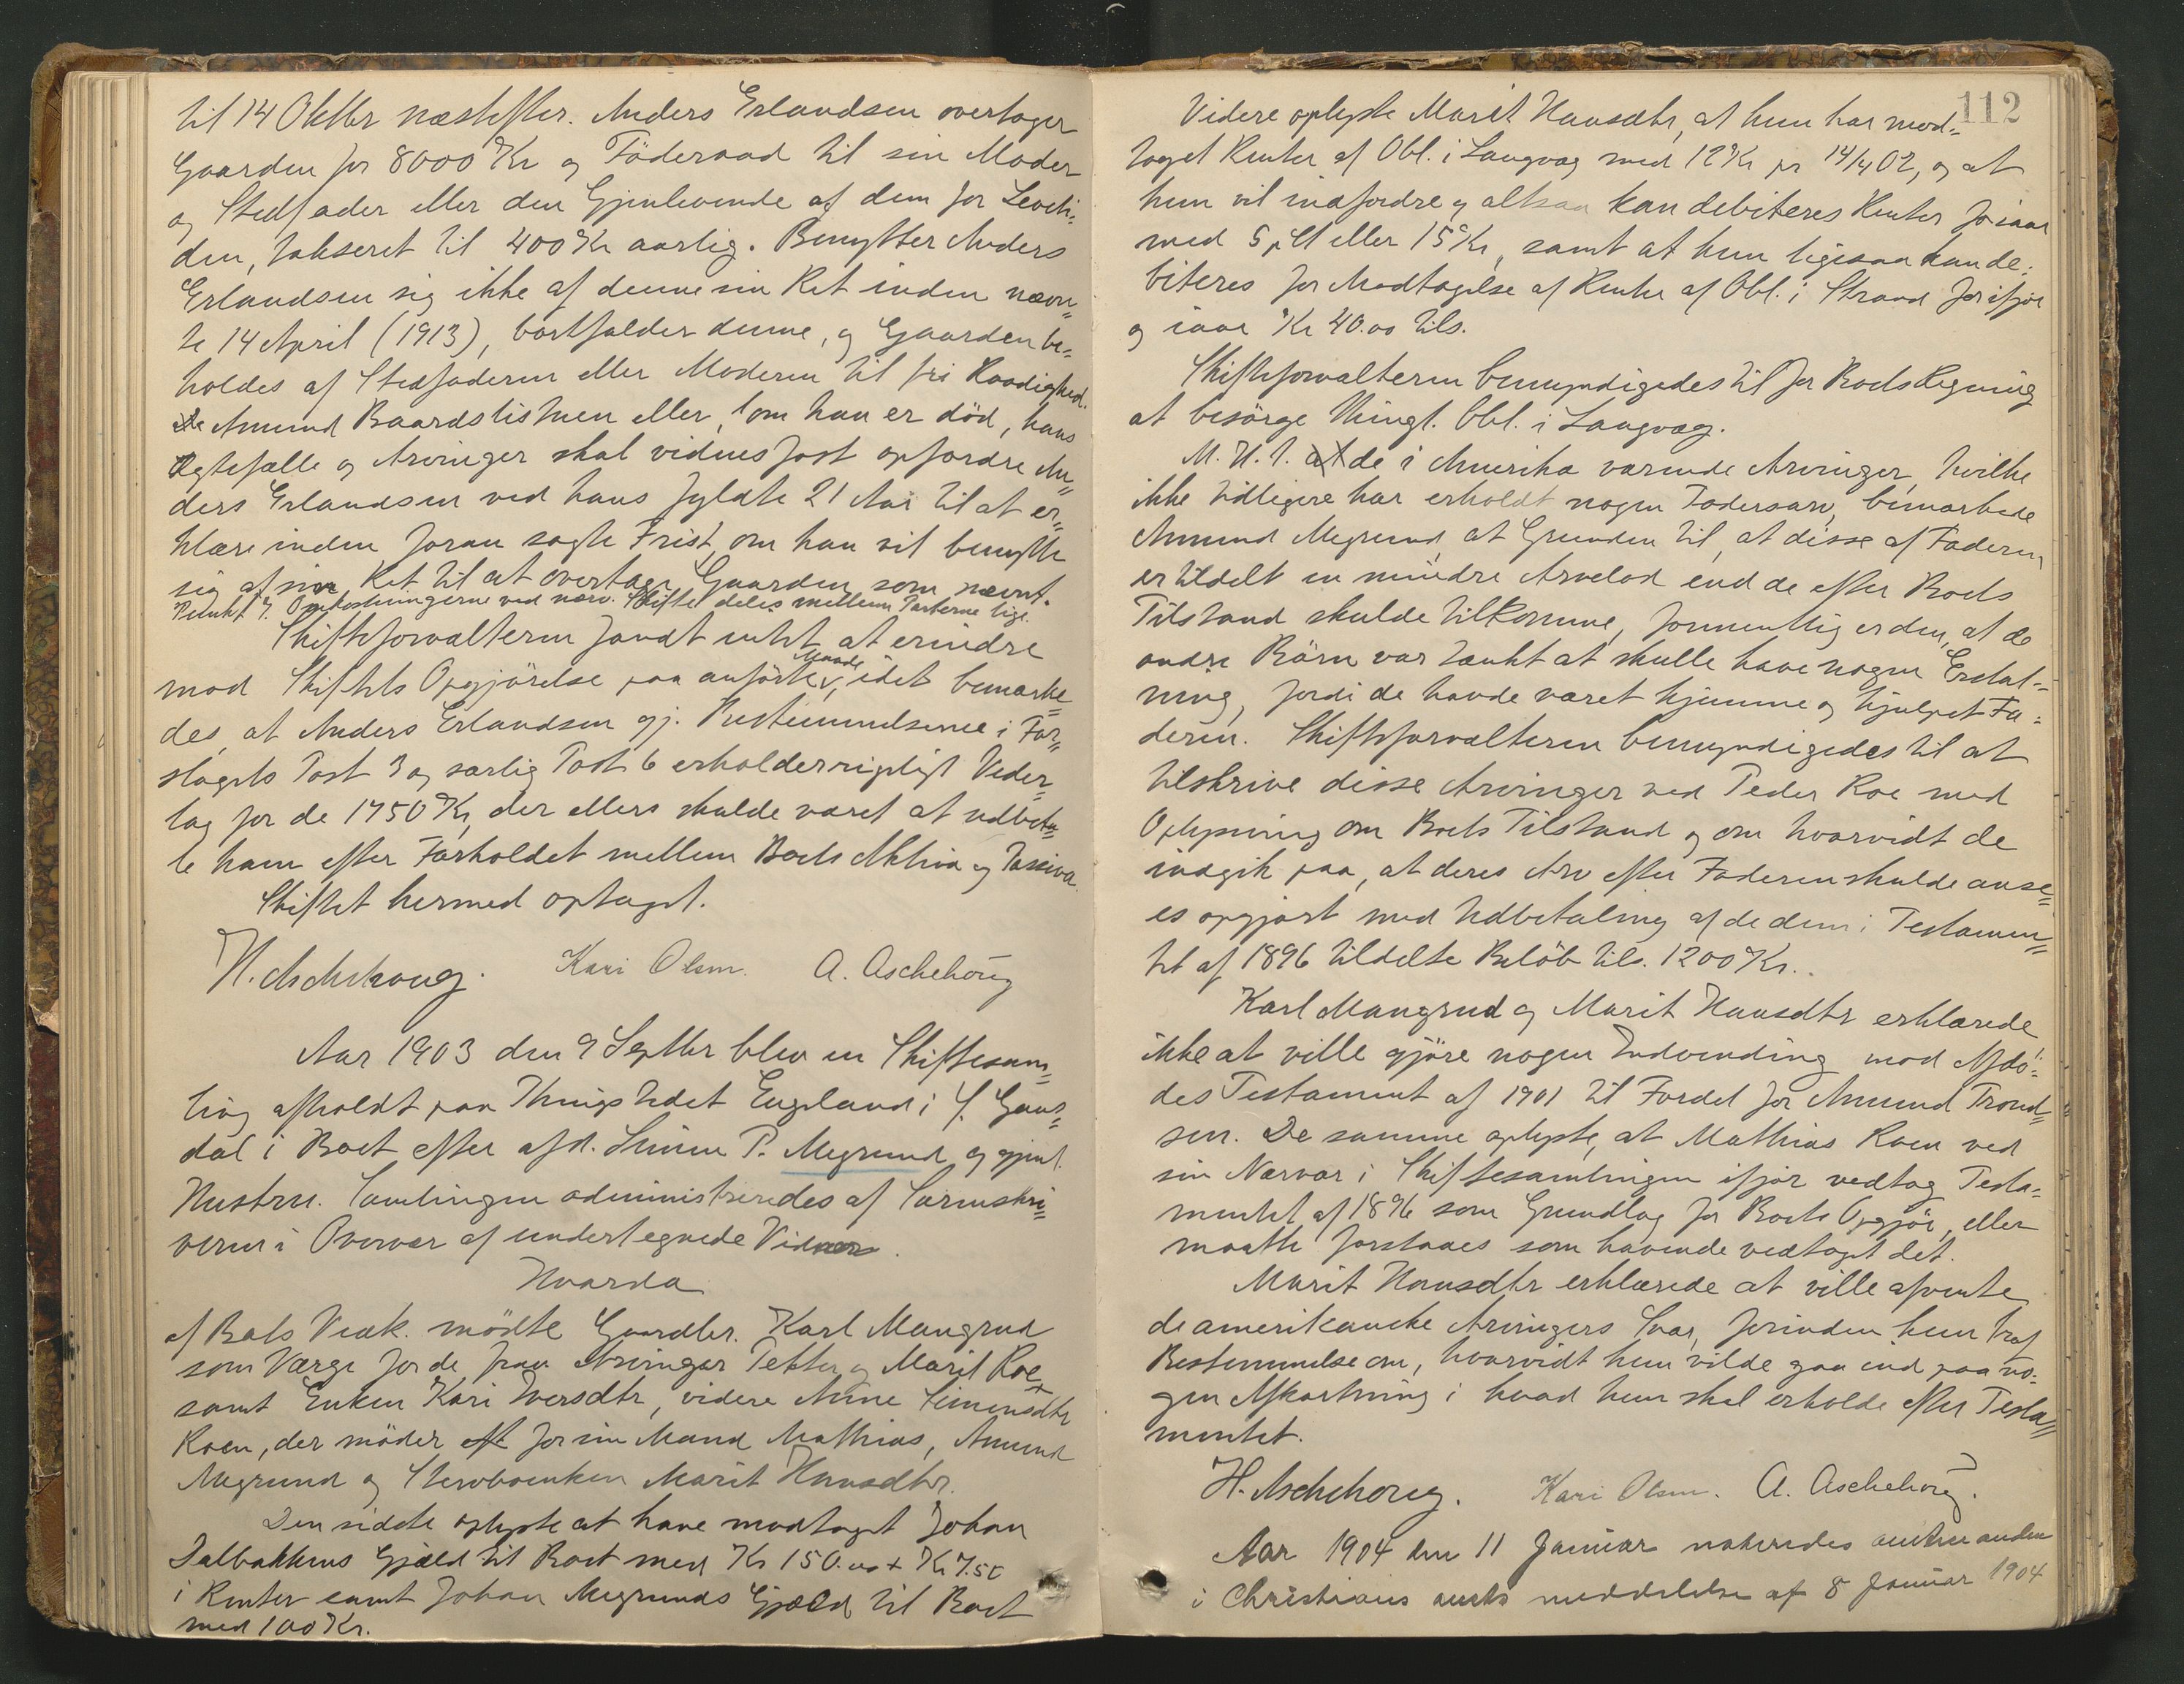 til 14 Oktbr næstefter. Anders Erlandsen overtager
Gaarden for 8000 Kr og Föderaad til sin Moder
og Stedfader eller den Gjenlevende af dem for Leveti-
den, takseret til 400 Kr aarlig. Benytter Anders
Erlandsen sig ikke af denne sin Ret inden nævn-
te 14 April (1913), bortfalder denne, og Gaarden be-
holdes af Stedfaderen eller Moderen til fri Raadighed.
Amund Baardslistuen eller, om han er död, hans
Ægtefælle og Arvinger skal vidnesfast opfordre An-
ders Erlandsen ved hans fyldte 21 Aar til at er-
klære inden foran sagte Frist, om han vil benytte
sig af sin Ret til at overtage Gaarden som nævnt.
Punkt 7. Omkostningerne ved nærv. Skifte deles mellem Parterne lige.
Skifteforvalteren fandt intet at erindre
mod Skiftets Opgjörelse paa anförte Maade, idet bemærke-
des, at Anders Erlandsen gj. Bestemmelserne i For-
slagets Post 3 og særlig Post 6 erholder rigeligt Veder-
lag for de 1750 Kr, der ellers skulde været at udbeta-
le ham efter Forholdet mellem Boets Aktiva og Passiva.
Skiftet hermed optaget.
H. Aschehoug. Kari Olsen. A. Aschehoug
Aar 1903 den 9 Septbr blev en Skiftesam-
ling afholdt paa Thingstedet Engeland i V. Gaus-
dal i Boet efter afd. Simen P. Megrund og gjenl.
Hustru. Samlingen administreredes af Sorenskri-
veren i Overvær af undertegnede Vidner.
Hvorda
af Bots Vedk. mödte Gaardbr. Karl Mangrud
som Værge for de fravær. Arvinger Petter og Marit Roe
samt Enken Kari Iversdtr, videre Anne Simensdtr
Roen, der möder for sin Mand Mathias, Amund
Megrund og Stervboenken Marit Hansdtr.
Den sidste oplyste at have modtaget Johan
Dalbakkens Gjæld til Boet med Kr 150.00 + Kr 7.50
i Renter samt Johan Megrunds Gjæld til Boet
med 100 Kr.
112
Videre oplyste Marit Hansdtr, at hun har mod-
taget Renter af Obl. i Langvag med 12 Kr pr 14/4 02, og at
hun vil indfordre og altsaa kan debiteres Renter for iaar
med 5 pCt eller 15 Kr, samt at hun ligesaa kan de-
biteres for Modtagelse af Renter af Obl. i Strand for ifjor
og iaar Kr 40.00 tils.
Skifteforvalteren bemyndigedes til for Boets Regning
at besörge thingl. Obl. i Langvag.
M. H. t. at de i Amerika værende Arvinger, hvilke
ikke tidligere har erholdt nogen Fadersarv, bemærkede
Amund Megrund, at Grunden til, at disse af Faderen
er tildelt en mindre Arvelod end de efter Boets
Tilstand skulde tilkomme, formentlig er den, at de
andre Börn var tænkt at skulle have nogen Erstat-
ning, fordi de havde været hjemme og hjulpet Fa-
deren. Skifteforvalteren bemyndigedes til at
tilskrive disse Arvinger ved Peder Roe med
Oplysning om Boets Tilstand og om hvorvidt de
indgik paa, at deres Arv efter Faderen skulde anse-
es opgjort med Udbetaling af de dem i Testamen-
tet af 1896 tildelte Belöb tils. 1200 Kr.
Karl Mangrud og Marit Hansdtr erklærede
ikke at ville gjöre nogen Indvending mod Afdö-
des Testament af 1901 til Fordel for Amund Trond-
sen. De samme oplyste, at Mathias Roen ved
sin Nærvær i Skiftesamlingen ifjor vedtog Testa-
mentet af 1896 som Grundlag for Boets Opgjör, eller
maatte forstaaes som havende vedtaget det.
Marit Hansdtr erklærede at ville afvente
de amerikanske Arvingers Svar, forinden hun traf
Bestemmelse om, hvorvidt hun vilde gaa ind paa no-
gen Afkortning i hvad hun skal erholde efter Testa-
mentet.
H. Aschehoug. Kari Olsen. A. Aschehoug.
Aar 1904 den 11 Januar noteredes
i Christians amts meddelelse af 8 Januar 1904